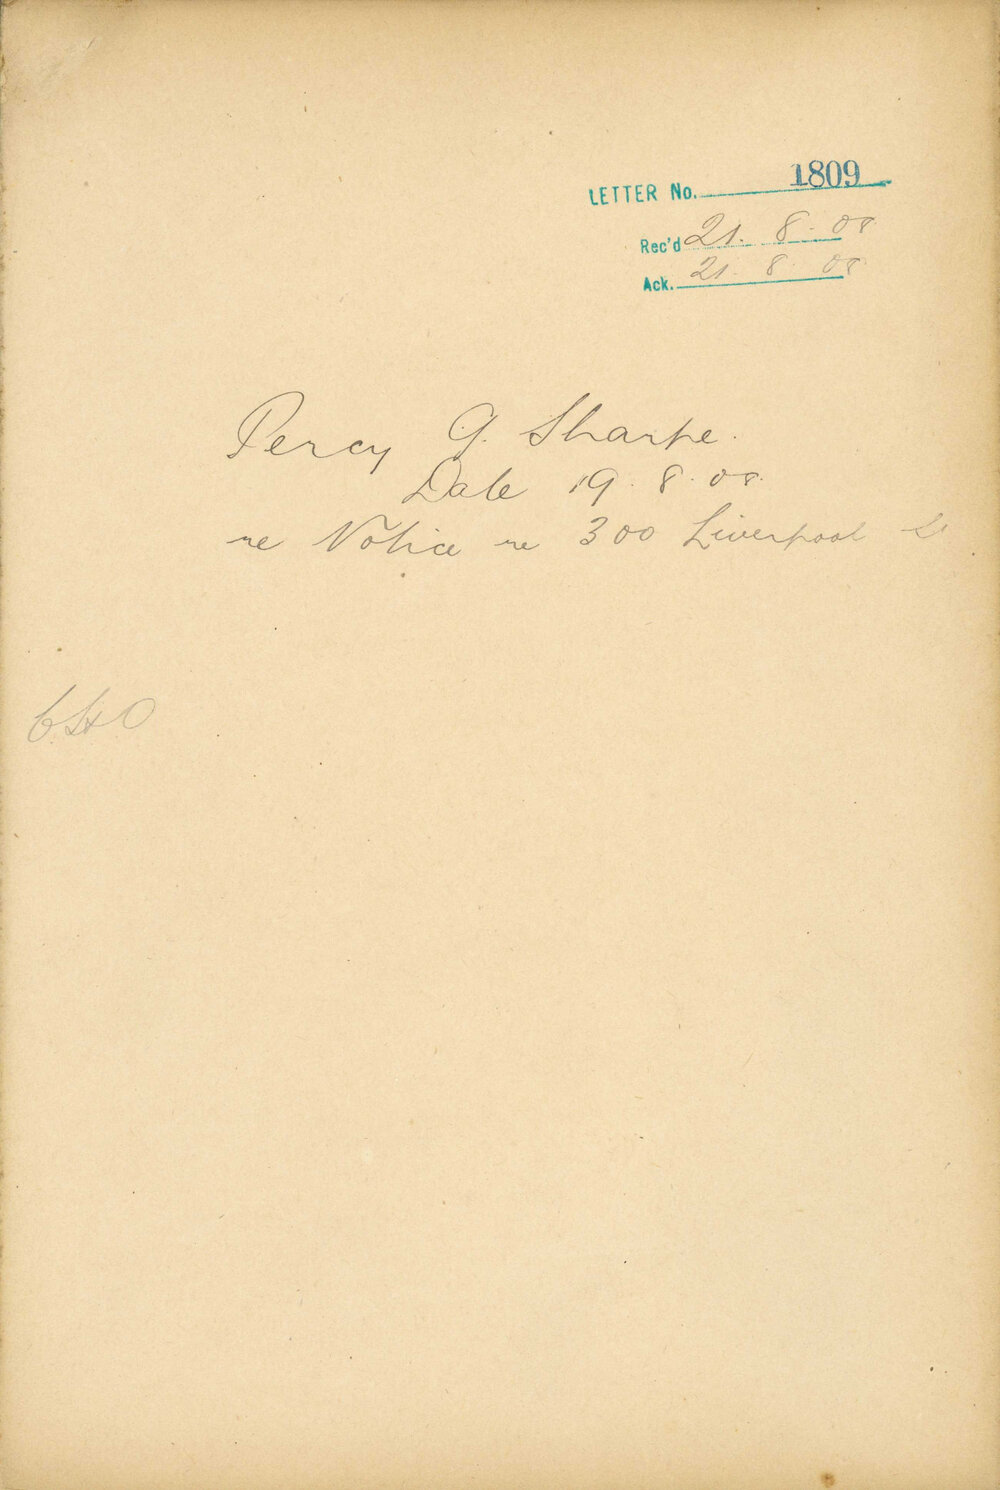 LETTER No. 1809
Rec'd 21. 8. 08
Ack. 21. 8. 08
Percy G. Sharpe.
Date 19. 8. 08.
re Notice re 300 Liverpool St